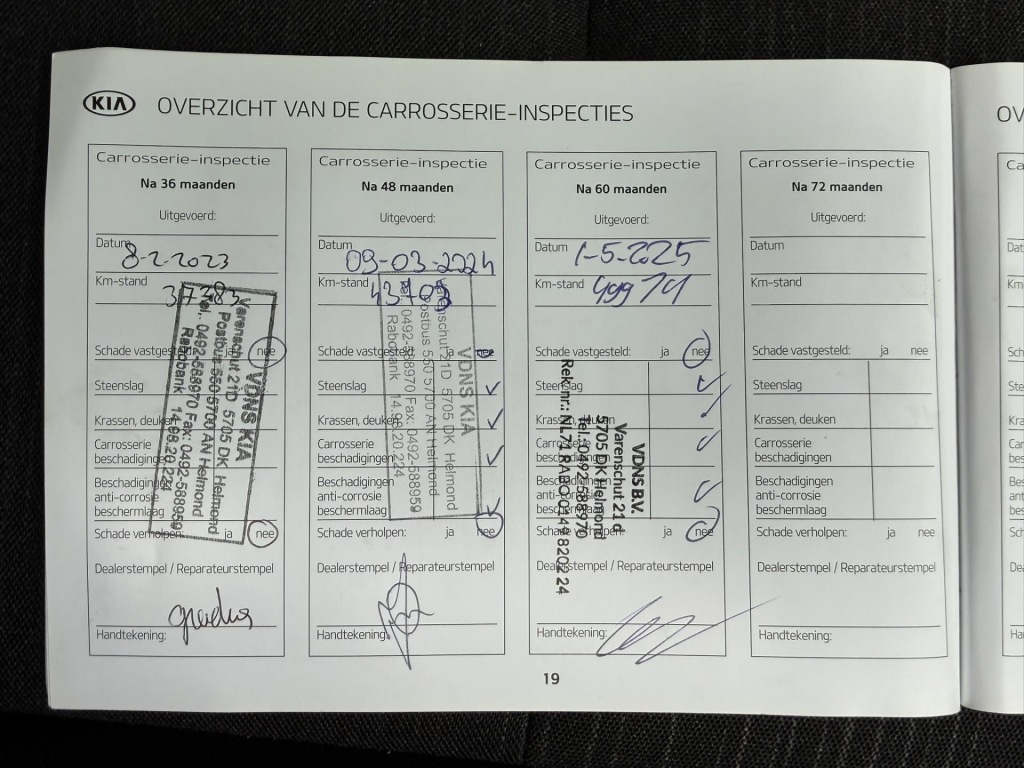 KIA OVERZICHT VAN DE CARROSSERIE-INSPECTIES
Carrosserie-inspectie
Na 36 maanden
Uitgevoerd:
Datum 8-2-2023
Km-stand 37383
Schade vastgesteld: ja nee
Steenslag
Krassen, deuken
Carrosserie
beschadigingen
Beschadigingen
anti-corrosie
beschermlaag
Schade verholpen: ja nee
Dealerstempel / Reparateurstempel
Handtekening:
VDNS KIA
Varenschut 21D 5705 DK Helmond
Postbus 550 5700 AN Helmond
Tel. 0492-588970 Fax: 0492-588959
Rabobank 14.08.20.224
Carrosserie-inspectie
Na 48 maanden
Uitgevoerd:
Datum 09-03-2024
Km-stand 43708
Schade vastgesteld: nee
Steenslag
Krassen, deuken
Carrosserie
beschadigingen
Beschadigingen
anti-corrosie
beschermlaag
Schade verholpen: ja nee
Dealerstempel / Reparateurstempel
Handtekening:
VDNS KIA
Varenschut 21D 5705 DK Helmond
Postbus 550 5700 AN Helmond
Tel. 0492-588970 Fax: 0492-588959
Rabobank 14.08.20.224
Carrosserie-inspectie
Na 60 maanden
Uitgevoerd:
Datum 1-5-2025
Km-stand 49974
Schade vastgesteld: ja nee
Steenslag
Krassen, deuken
Carrosserie
beschadigingen
Beschadigingen
anti-corrosie
beschermlaag
Schade verholpen: ja nee
Dealerstempel / Reparateurstempel
Handtekening:
VDNS B.V.
Varenschut 21 d
5705 DK Helmond
Tel: 0492 588970
Rek.nr.: NL71 RABO 0140 8202 24
Carrosserie-inspectie
Na 72 maanden
Uitgevoerd:
Datum
Km-stand
Schade vastgesteld: ja nee
Steenslag
Krassen, deuken
Carrosserie
beschadigingen
Beschadigingen
anti-corrosie
beschermlaag
Schade verholpen: ja nee
Dealerstempel / Reparateurstempel
Handtekening:
19